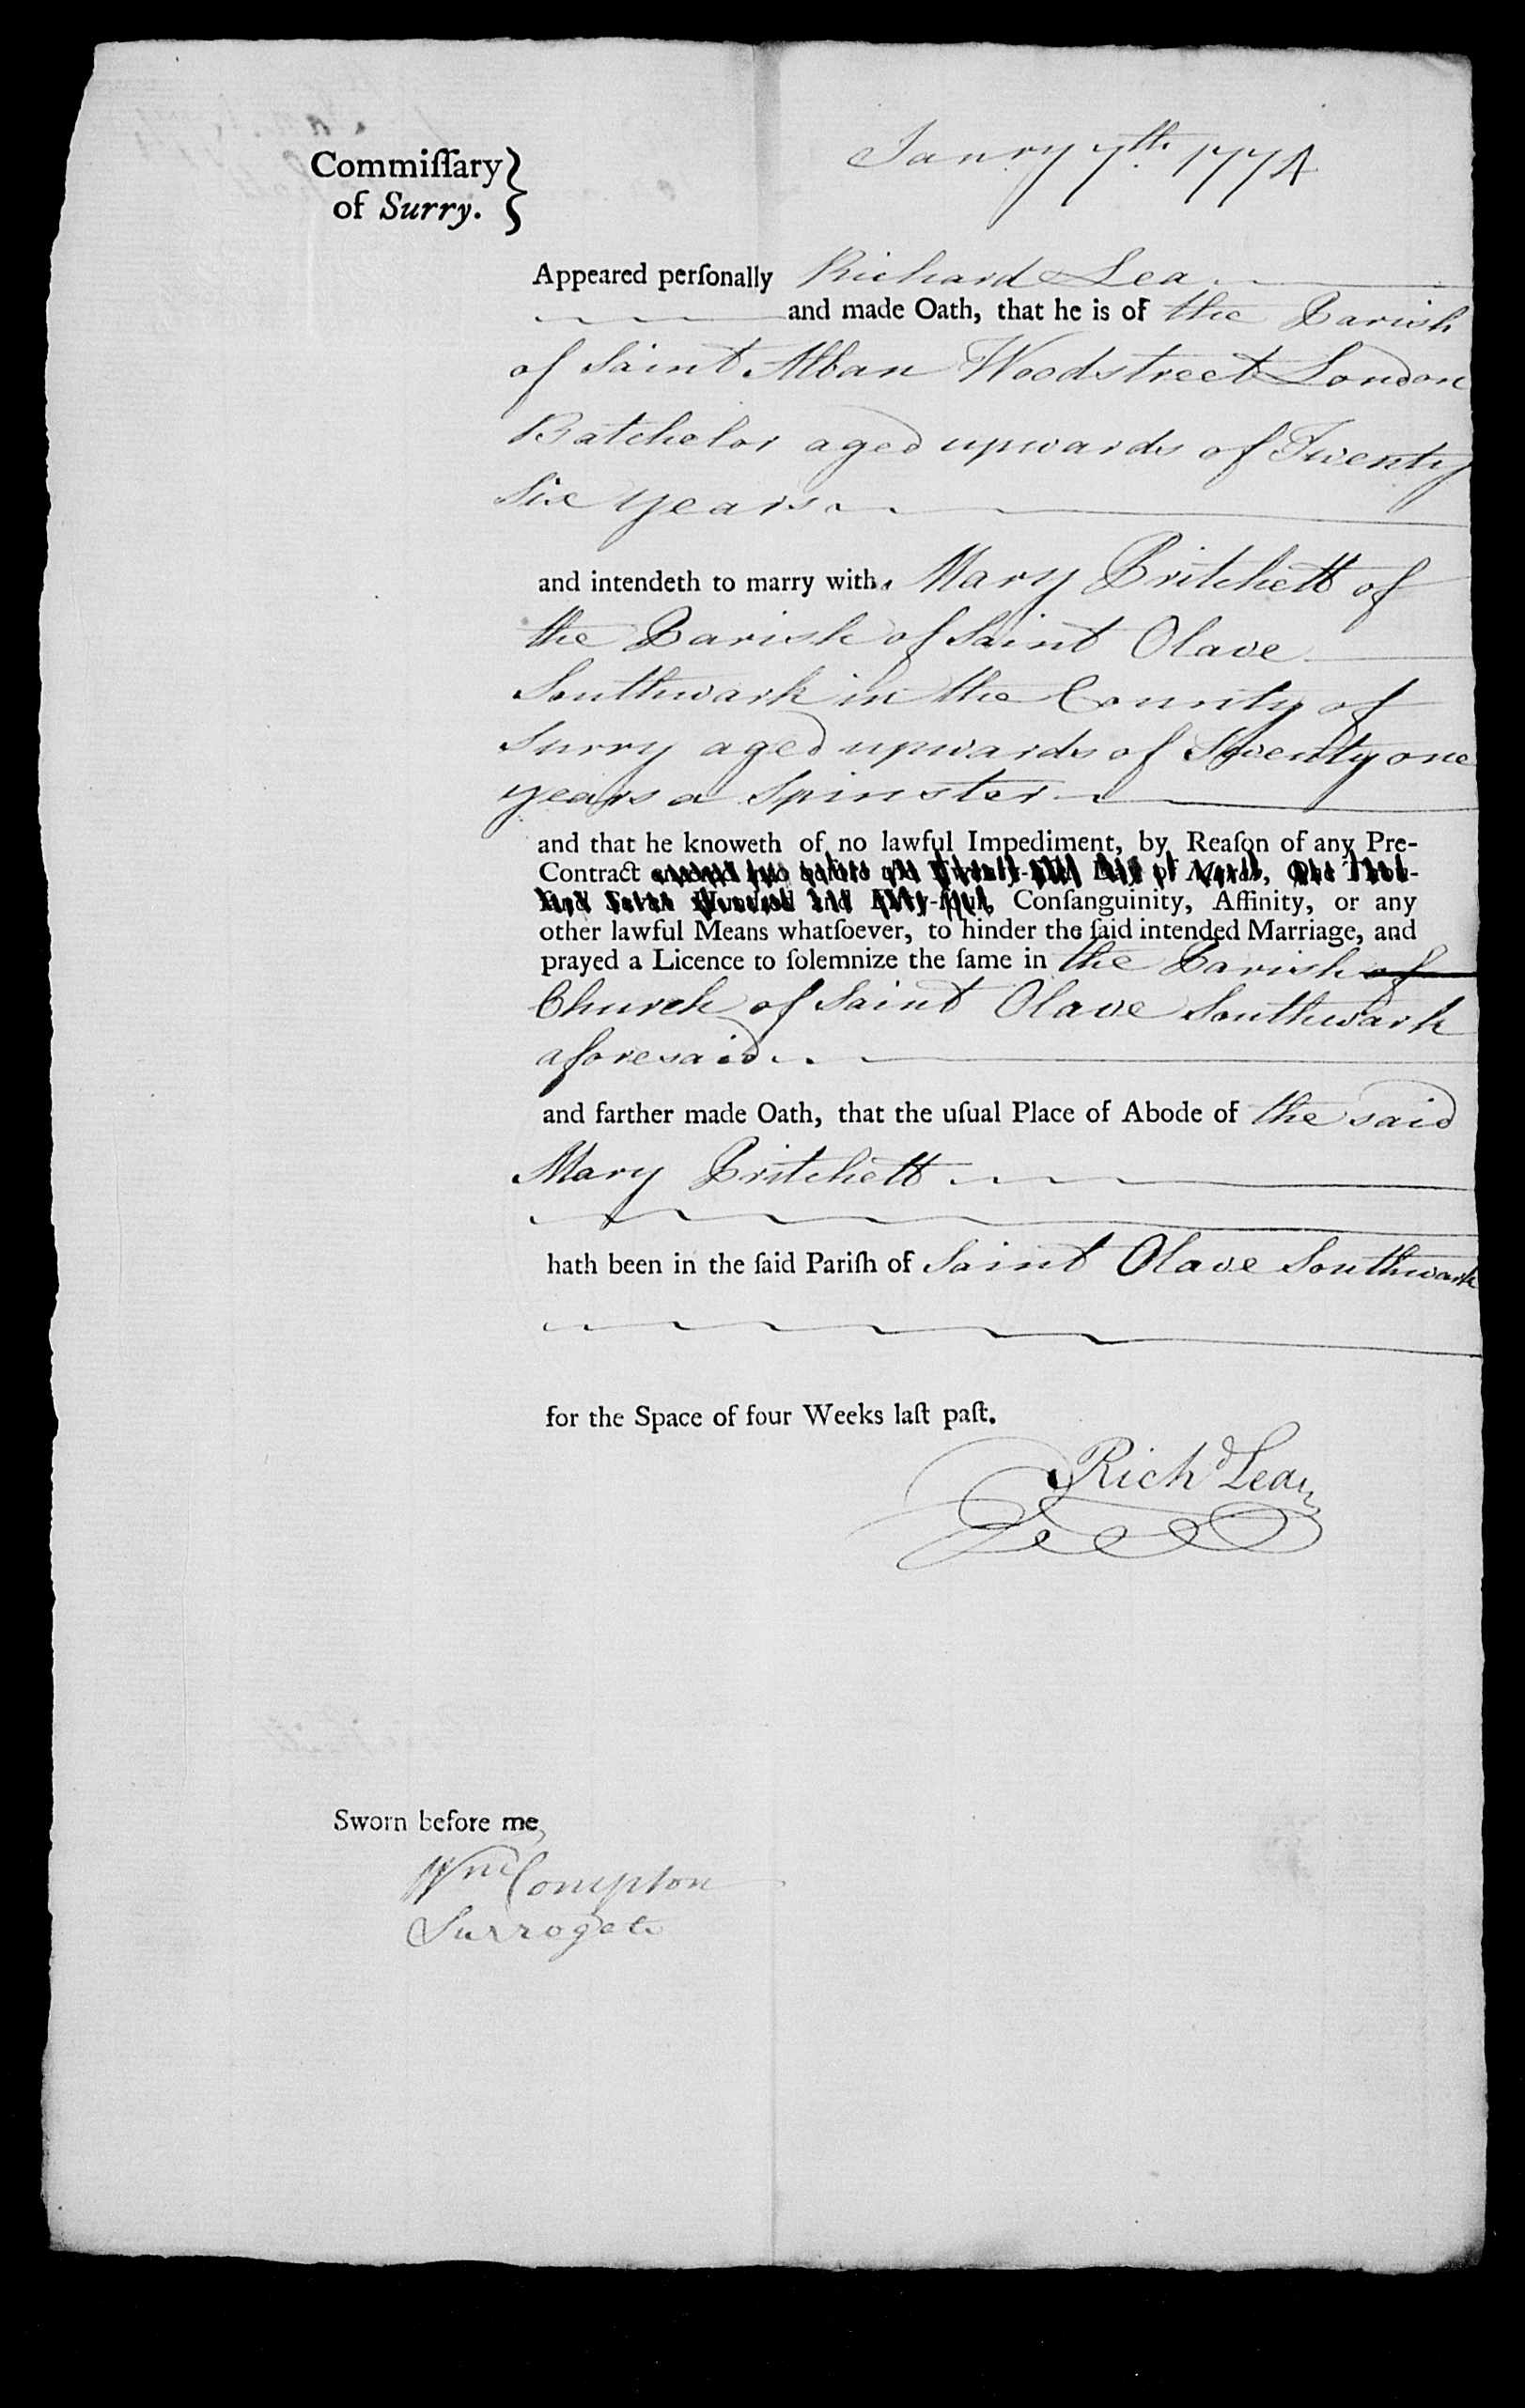 Commiſſary }
of Surry. }
Janry 7th. 1774
Appeared perſonally Richard Lea
and made Oath, that he is of the Parish
of Saint Alban Woodstreet London
Batchelor aged upwards of Twenty
Six years
and intendeth to marry with Mary Pritchett of
the Parish of Saint Olave
Southwark in the County of
Surry aged upwards of Twenty one
years a Spinster
and that he knoweth of no lawful Impediment, by Reaſon of any Pre-
Contract
Conſanguinity, Affinity, or any
other lawful Means whatſoever, to hinder the ſaid intended Marriage, and
prayed a Licence to ſolemnize the ſame in the Parish of
Church of Saint Olave Southwark
aforesaid
and farther made Oath, that the uſual Place of Abode of the said
Mary Pritchett
hath been in the ſaid Pariſh of Saint Olave Southwark
for the Space of four Weeks laſt paſt.
Richd Lea
Sworn before me,
Wm Compton
Surrogate